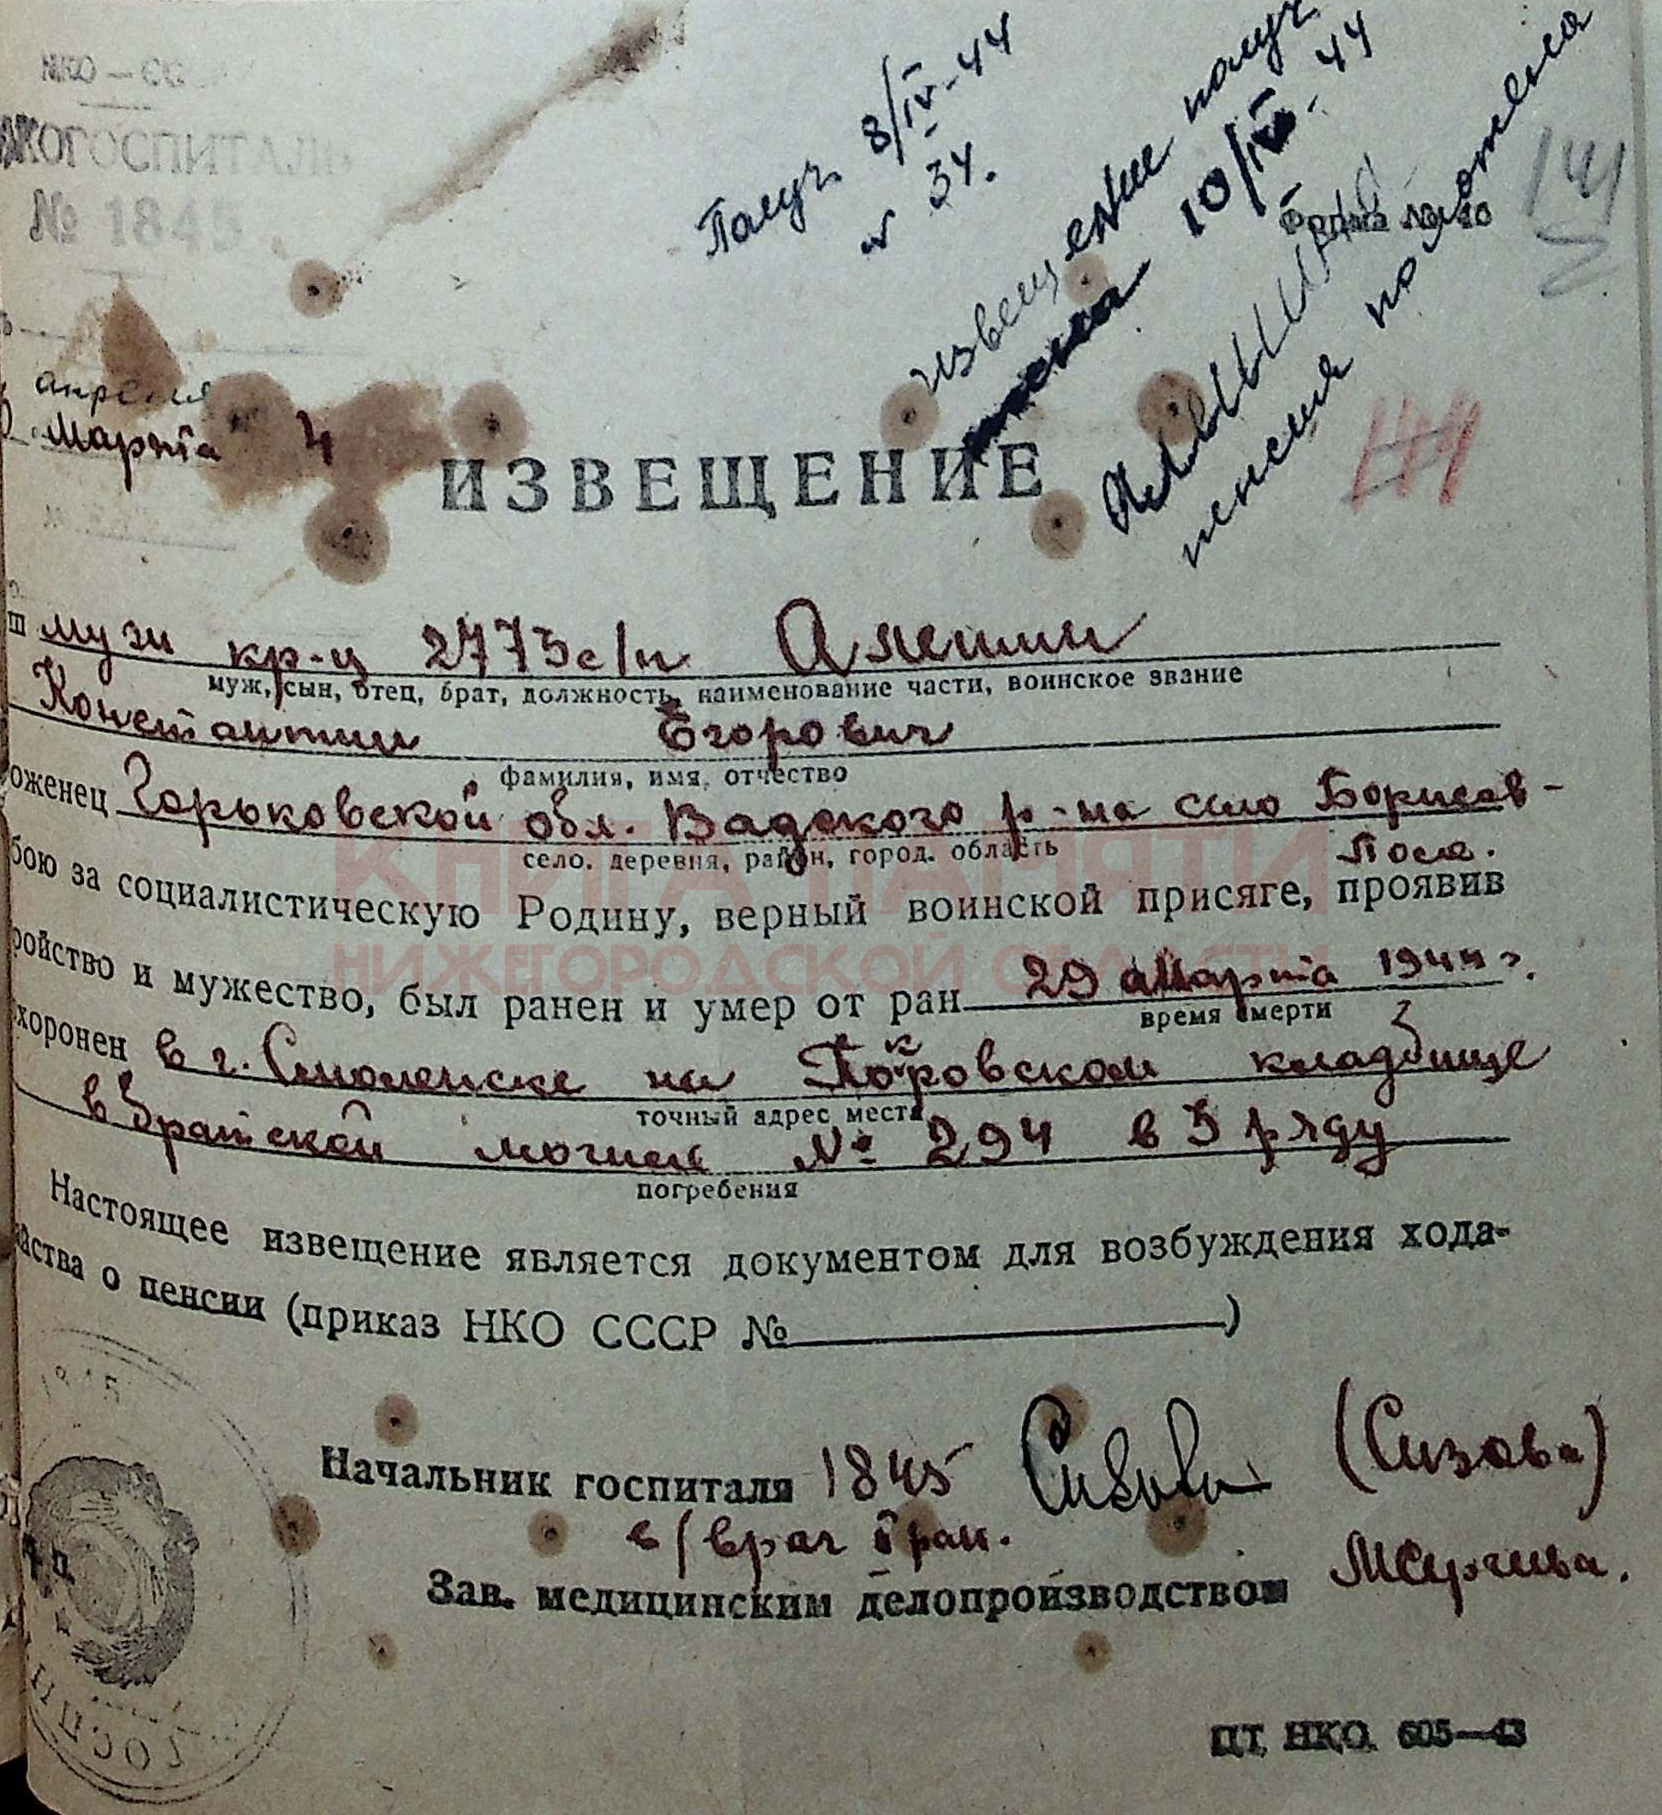 НКО — СС
ГОСПИТАЛЬ
№ 1845
Получ. 8/IV-44
34.
извещение получ
10/IV-44
Форма № 10
пенсия
141
апреля
Марта 4
144
ИЗВЕЩЕНИЕ
ш муж кр-ц 2773 с/п Алешин
муж, сын, отец, брат, должность, наименование части, воинское звание
Константин Егорович
фамилия, имя, отчество
оженец Горьковской обл. Вадского р-на село Борисов-
село, деревня, район, город, область
Поля.
бою за социалистическую Родину, верный воинской присяге, проявив
ройство и мужество, был ранен и умер от ран 29 Марта 1944 г.
время смерти
хоронен в г. Смоленске на Покровском кладбище
точный адрес места
в братской могиле № 294 в 3 ряду
погребения
Настоящее извещение является документом для возбуждения хода-
айства о пенсии (приказ НКО СССР № )
1845
Начальник госпиталя 1845 Сизова (Сизова)
в/врач 3 ран.
Зав. медицинским делопроизводством
ГОСПИ
ЦТ НКО 605—43
КНИГА ПАМЯТИ
НИЖЕГОРОДСКОЙ ОБЛАСТИ